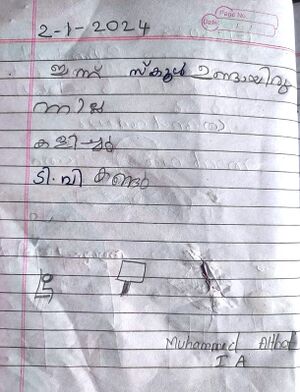 Page No.
Date
2-1-2024
ഇന്ന് സ്കൂൾ ഉണ്ടായിരു
ന്നില്ല
കളിച്ചു
ടി.വി കണ്ടു
Muhammed
I A